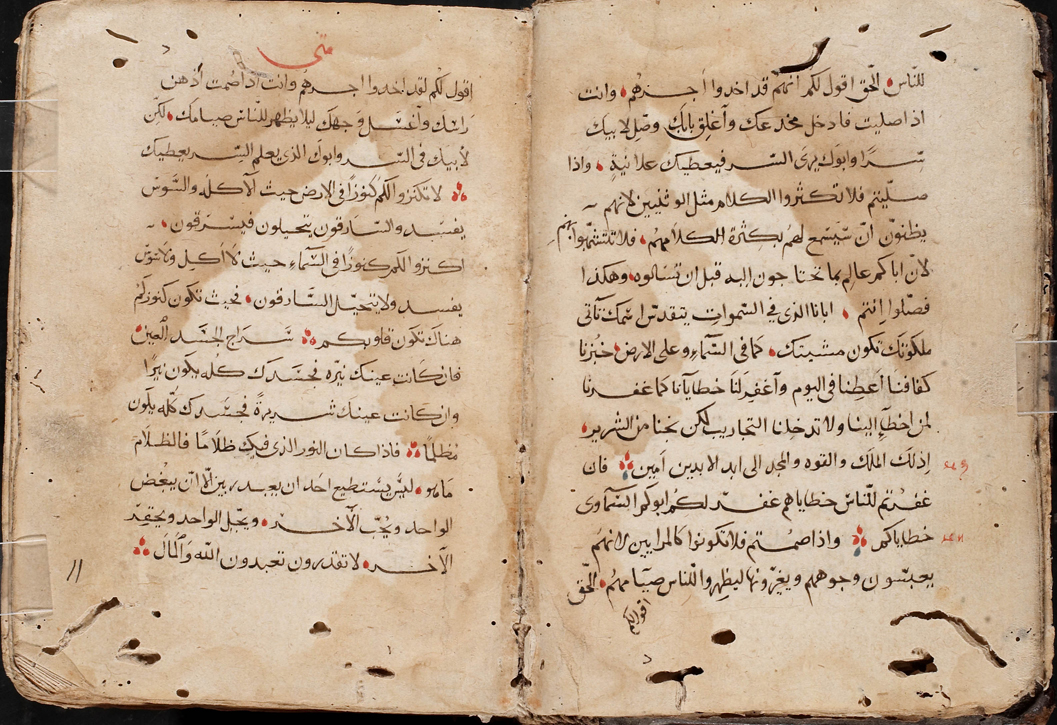 للنّاس الحق اقول لكم انهم قد اخدوا اجرهم وانت
اذا صليت فادخل مخدعك وأغلق بابك وصلّ لابيك
سرًا وابوك يرى السر فيعطيك علانيةً واذا
صليتم فلا تكثروا الكلام مثل الوثنيين لانهم
يظنون ان سيسمع لهم بكثرة الكلام مهم فلا تتشبهوا بهم
لان اباكم عالم بما تحتاجون اليه قبل ان تسالوه وهكذا
فصلوا انتم ابانا الذى في السموات يتقدس اسمك تاتى
ملكوتك تكون مشيتك كما في السماء وعلى الارض خبزنا
كفافنا أعطنا في اليوم وآغفر لنا خطايانا كما غفرنا
لمن اخطا الينا ولا تدخلنا التجاريب لكن نجنا من الشرير
اذ لك الملك والقوه والمجد الى ابد الابدين امين فان
غفرتم للناس خطاياهم غفر لكم ابوكم السماوى
خطاياكم واذا صمتم فلا تكونوا كالمرايين لانهم
يعبسون وجوههم ويغيرونها ليظهروا للناس صيامهم الحق
اقول لكم
متى
اقول لكم لقد اخدوا اجرهم وانت اذا صمت أدهن
راسك وآغسل وجهك ليلا يظهر للناس صيامك لكن
لأبيك في السر وابوك الذى يعلم السر يعطيك
لا تكنزوا لكم كنوزًا في الارض حيث الآكله والسوس
يفسد والسارقون يتحيلون فيسرقون
اكنزوا لكم كنوزًا في السماء حيث لا اكل ولا سوس
يفسد ولا يتحيل السارقون فحيث تكون كنوزكم
هناك تكون قلوبكم سراج الجسد العين
فان كانت عينك نيره فجسدك كله يكون نيرا
وان كانت عينك شريرةً فجسدك كله يكون
مظلمًا فاذا كان النور الذى فيك ظلامًا فالظلام
ما هو ليس يستطيع احد ان يعبد ربين الا ان يبغض
الواحد ويحب الآخر ويجل الواحد ويحقر
الآخر لا تقدرون تعبدون الله والمال
١١